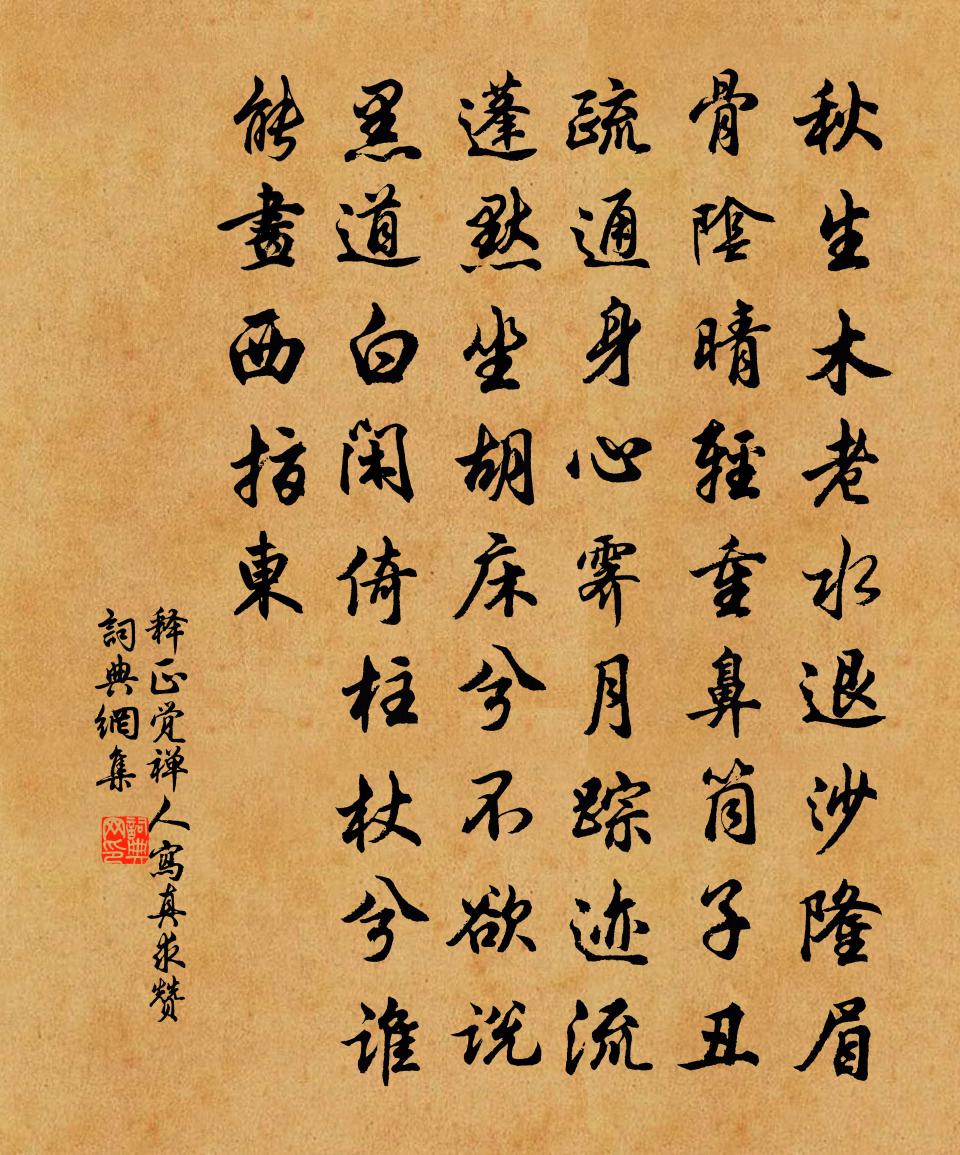 秋生木老水退沙隆眉
骨陰晴輕重鼻筒子丑
疏通身心霽月踪迹流
蓬默坐胡床兮不欲说
黑道白闲倚柱杖兮谁
能畫西指東
释正觉禅人寫真求赞
詞典網集
詞典網印